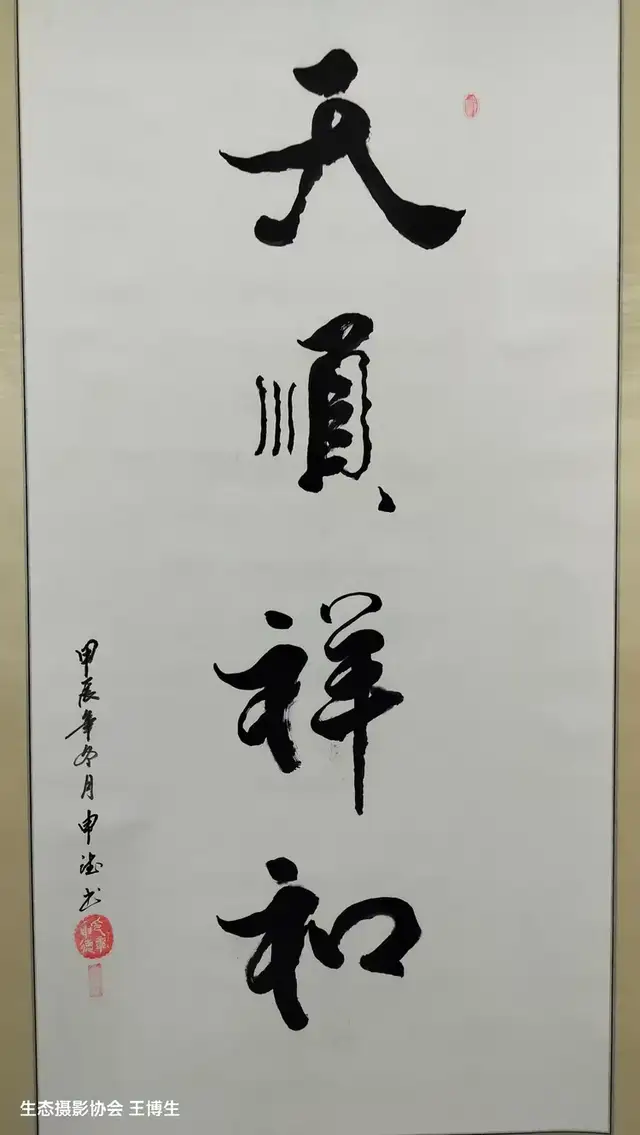 天順祥和
甲辰年冬月申德书
生态摄影协会 王博生